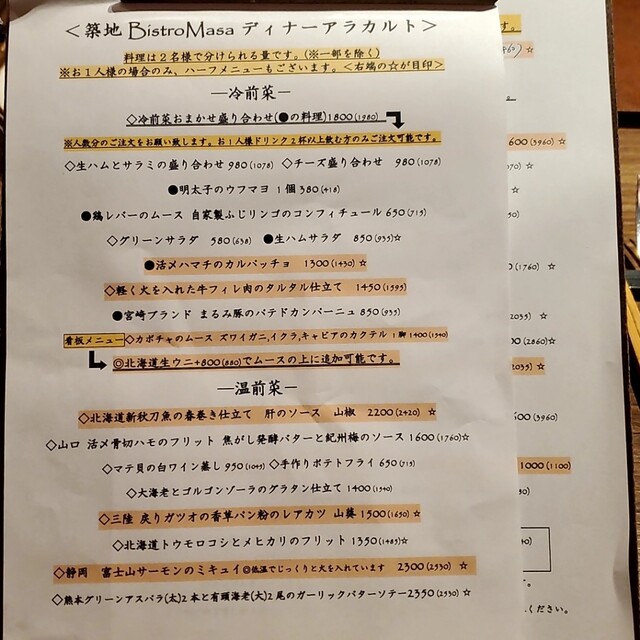 <築地 BistroMasa ディナーアラカルト>
料理は2名様で分けられる量です。(※一部を除く)
※お1人様の場合のみ、ハーフメニューもございます。<右端の☆が目印>
―冷前菜―
◇冷前菜おまかせ盛り合わせ(●の料理)1800(1980)
※人数分のご注文をお願い致します。お1人様ドリンク2杯以上飲む方のみご注文可能です。
◇生ハムとサラミの盛り合わせ 980(1078) ◇チーズ盛り合わせ 980(1078)
●明太子のウフマヨ 1個 380(418)
●鶏レバーのムース 自家製ふじリンゴのコンフィチュール 650(715)
◇グリーンサラダ 580(638) ●生ハムサラダ 850(935)☆
●活〆ハマチのカルパッチョ 1300(1430)☆
◇軽く火を入れた牛フィレ肉のタルタル仕立て 1450(1595)
●宮崎ブランド まるみ豚のパテドカンパーニュ 850(935)
看板メニュー ◇カボチャのムース ズワイガニ,イクラ,キャビアのカクテル 1脚 1400(1540)
◎北海道生ウニ+800(880)でムースの上に追加可能です。
―温前菜―
◇北海道新秋刀魚の春巻き仕立て 肝のソース 山椒 2200(2420) ☆
◇山口 活〆骨切ハモのフリット 焦がし発酵バターと紀州梅のソース 1600(1760)☆
◇マテ貝の白ワイン蒸し 950(1045) ◇手作りポテトフライ 650(715)
◇大海老とゴルゴンゾーラのグラタン仕立て 1400(1540)
◇三陸 戻りガツオの香草パン粉のレアカツ 山葵 1500(1650) ☆
◇北海道トウモロコシとメヒカリのフリット 1350(1485)☆
◇静岡 富士山サーモンのミキュイ◎低温でじっくりと火を入れています 2300(2530) ☆
◇熊本グリーンアスパラ(太)2本と有頭海老(大)2尾のガーリックバターソテー2350(2530) ☆
す。
600(3960) ☆
0(1760) ☆
2035) ☆
00(2860)☆
2035) ☆
600(3960)
1000(1100)
ください。